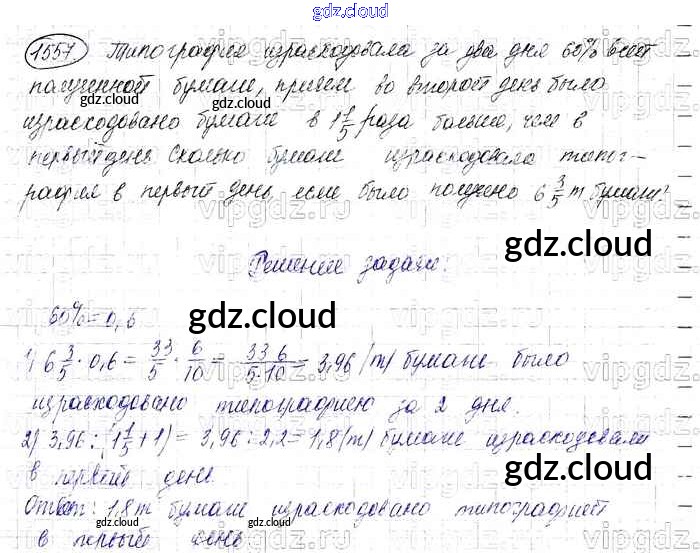 gdz.cloud
1557 Типография израсходовала за два дня 60% всей
полученной бумаги, причем во второй день было
израсходовано бумаги в 1 1/5 раза больше, чем в
первый день. Сколько бумаги израсходовала типог-
рафия в первый день, если было получено 6 3/5 т бумаги?
gdz.cloud
gdz.cloud
gdz.cloud
Решение задачи:
gdz.cloud
gdz.cloud
60% = 0,6
1) 6 3/5 · 0,6 = 33/5 · 6/10 = 33 6/5·10 = 3,96 (т) бумаги было
израсходовано типографиею за 2 дня.
2) 3,96 : (1 1/5 + 1) = 3,96 : 2,2 = 1,8 (т) бумаги израсходовали
в первый день.
Ответ: 1,8 т бумаги израсходовано типографией
в первый день
gdz.cloud
gdz.cloud
gdz.cloud